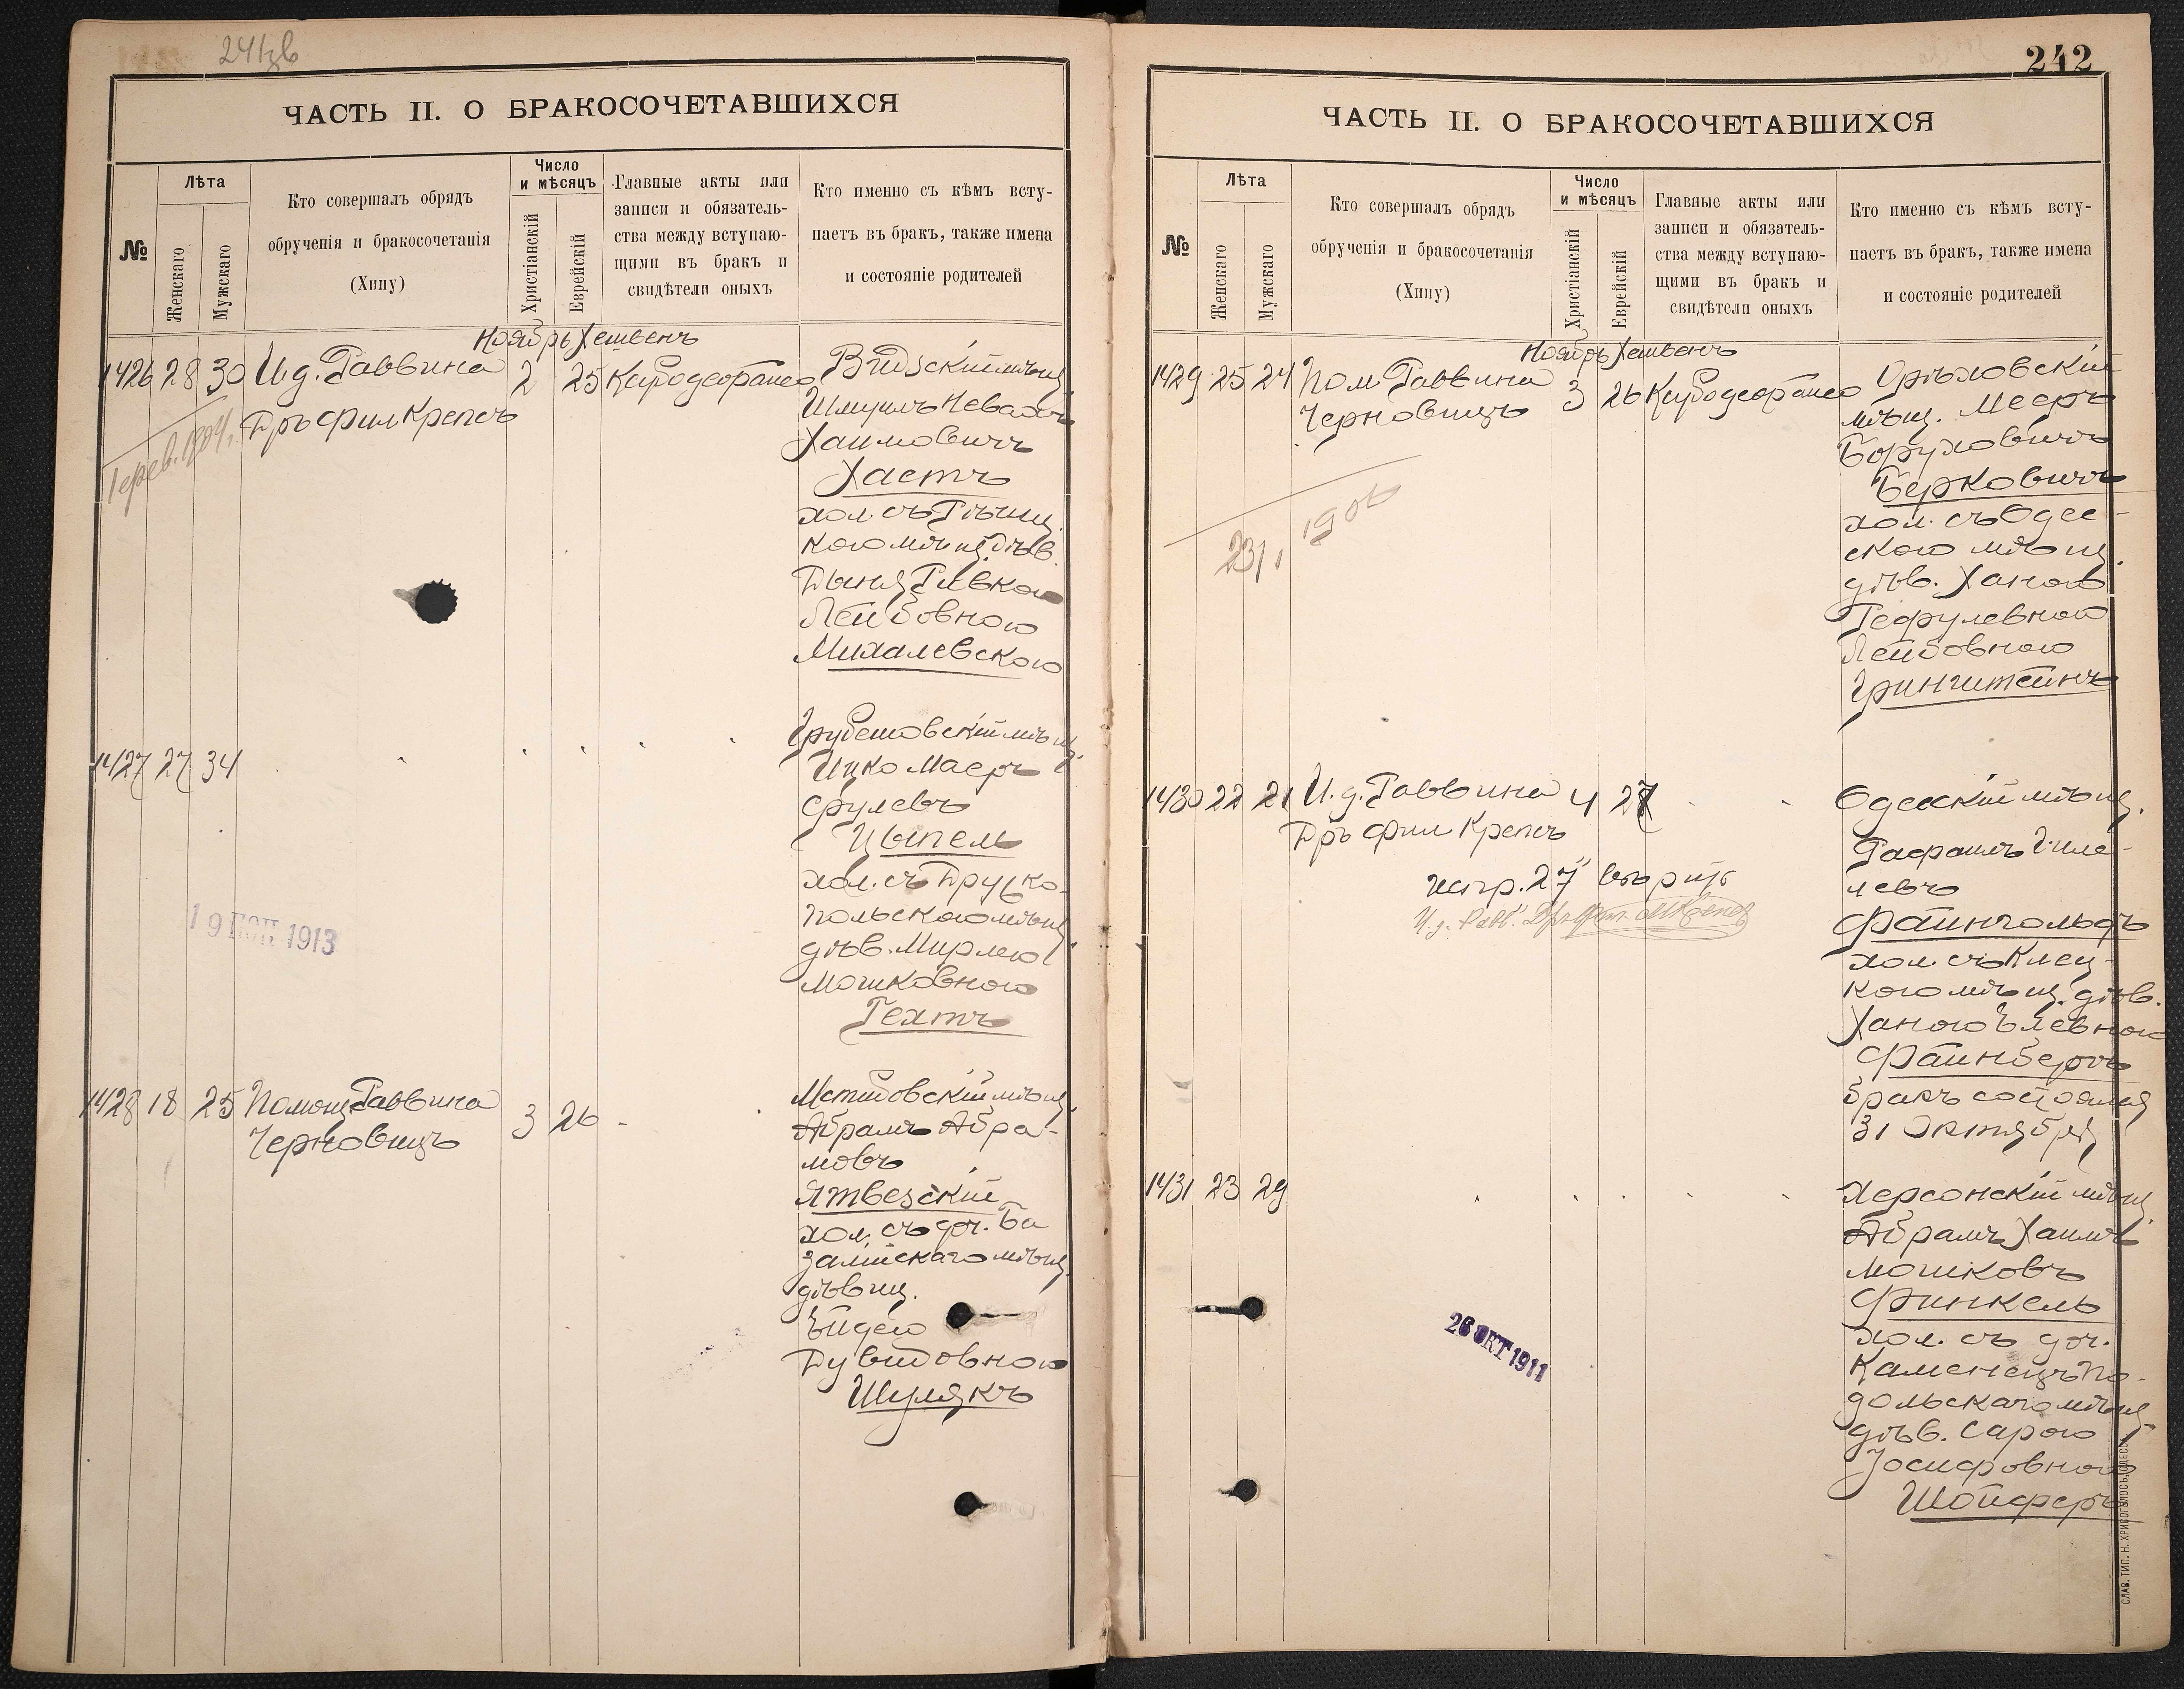 ЧАСТЬ II. О БРАКОСОЧЕТАВШИХСЯ
№
Лѣта
Женскаго
Мужскаго
Кто совершалъ обрядъ
обрученія и бракосочетанія
(Хипу)
Число
и мѣсяцъ
Христіанскій
Еврейскій
Главные акты или
записи и обязатель-
ства между вступаю-
щими въ бракъ и
свидѣтели оныхъ
Кто именно съ кѣмъ всту-
паетъ въ бракъ, также имена
и состояніе родителей
Ноябрь Хешвенъ
1426 28 30 И.д. Раввина 2 25
Дръ Фил Крепсъ
Видзскій мѣщ.
Шмуилъ
Хаимовичъ
Хастъ
хол. съ
кого мѣщ. дѣв.
Ривкою
Лейбовною
Михалевскою
1427 27 34
Грубешовскій мѣщ.
Ицко Маеръ
Срулевъ
Цыпель
хол. съ Друцко-
польского мѣщ.
дѣв. Мирлею
Мошковною
Гехтъ
19 1913
1428 18 25 Помощ. Раввина 3 26
Черновицъ
Мстибовскій мѣщ.
Абрамъ Абра-
мовъ
Ятвезскій
хол. съ доч. Ба
залійскаго мѣщ.
дѣвиц.
Дувидовною
Шулякъ
242
ЧАСТЬ II. О БРАКОСОЧЕТАВШИХСЯ
№
Лѣта
Женскаго
Мужскаго
Кто совершалъ обрядъ
обрученія и бракосочетанія
(Хипу)
Число
и мѣсяцъ
Христіанскій
Еврейскій
Главные акты или
записи и обязатель-
ства между вступаю-
щими въ бракъ и
свидѣтели оныхъ
Кто именно съ кѣмъ всту-
паетъ въ бракъ, также имена
и состояніе родителей
Ноябрь Хешвенъ
1429 25 24 Пом. Раввина 3 26
Черновицъ
Орѣховскій
мѣщ. Мееръ
Боруховичъ
Берковичъ
хол. съ Одес-
ского мѣщ.
дѣв. Ханою
Лейбовною
Гринштейнъ
1430 22 21 И.д. Раввина 4 27
Дръ Фил Крепсъ
испр. 27 вѣрить
Одесскій мѣщ.
Рафаилъ Гиле-
левъ
Файнгольдъ
хол. съ Клец-
кого мѣщ. дѣв.
Ханою Элевною
Файнбергъ
бракъ состоялся
31 Октября
1431 23 29
Херсонскій мѣщ.
Абрамъ Хаимъ
Мошковъ
Финкель
хол. съ доч.
Каменецъ По-
дольскаго мѣщ.
дѣв. Сарою
Іосифовною
Шойферъ
26 ОКТ 1911
СЛАВ. ТИП. Н. ХРИСОГЕЛОСЪ, ОДЕССА